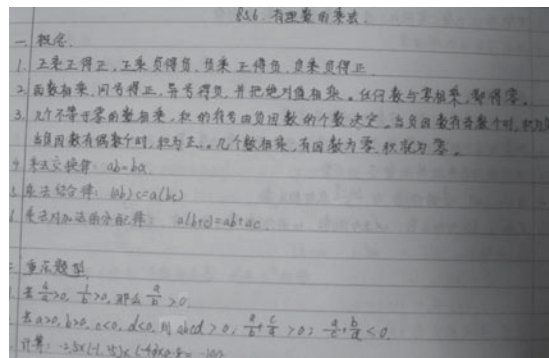 §5.6. 有理数的乘法.
一. 概念.
1. 正乘正得正, 正乘负得负, 负乘正得负, 负乘负得正
2. 两数相乘, 同号得正, 异号得负, 并把绝对值相乘。任何数与零相乘, 都得零。
3. 几个不等于零的数相乘, 积的符号由负因数的个数决定。当负因数有奇数个时, 积为
当负因数有偶数个时, 积为正.. 几个数相乘, 有因数为零, 积就为零。
4. 乘法交换律: ab=ba
5. 乘法结合律: (ab)c=a(bc)
6. 乘法对加法的分配律: a(b+c)=ab+ac
二. 重点题型.
那么
若a>0, b>0, c<0, d<0, 则 abcd > 0,
计算: